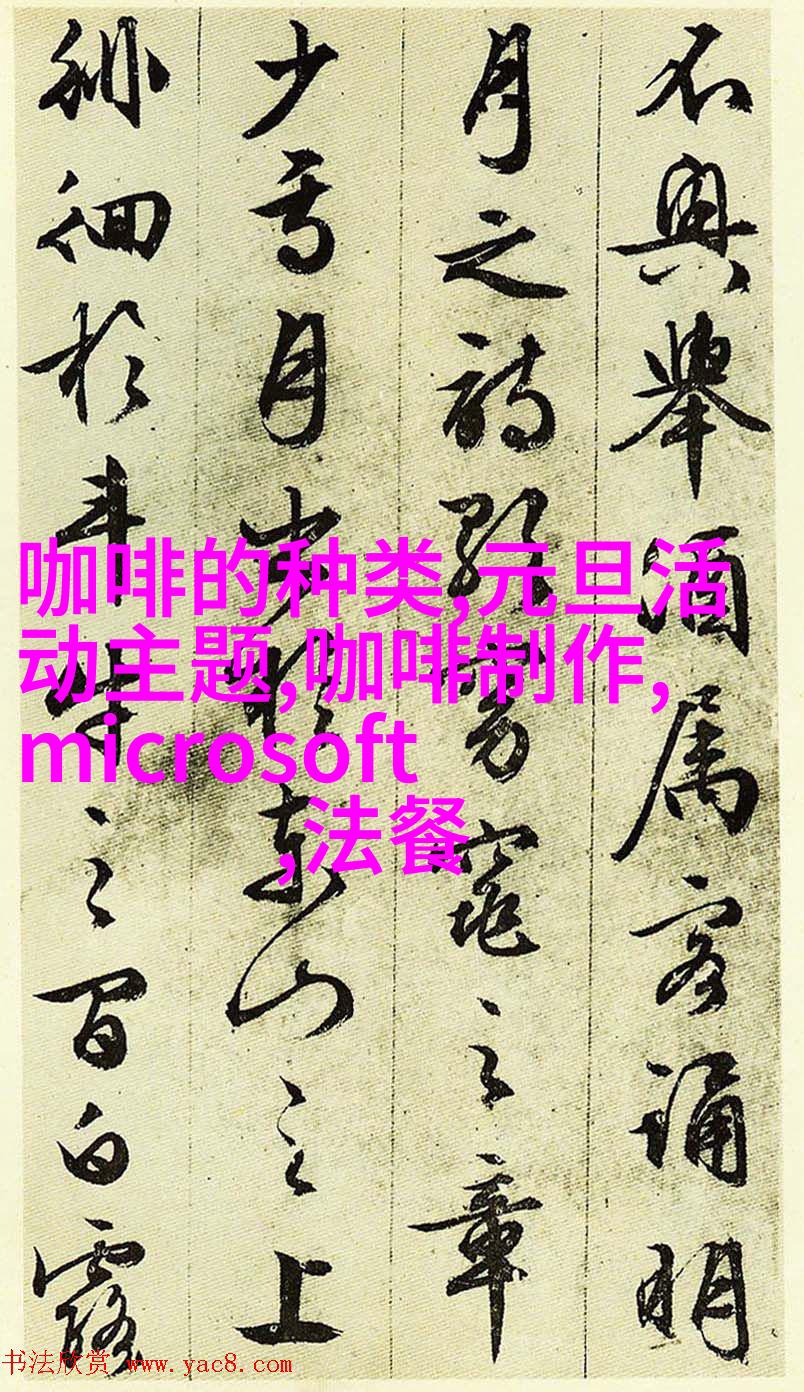 不興舉酒属客誦明
月之詩歌窈窕之章
少焉月出於東山之上
徘徊於斗牛之間白露
咖啡的种类,元旦活
动主题,咖啡制作,
microsoft
,法餐
书法欣赏 www.yac8.com